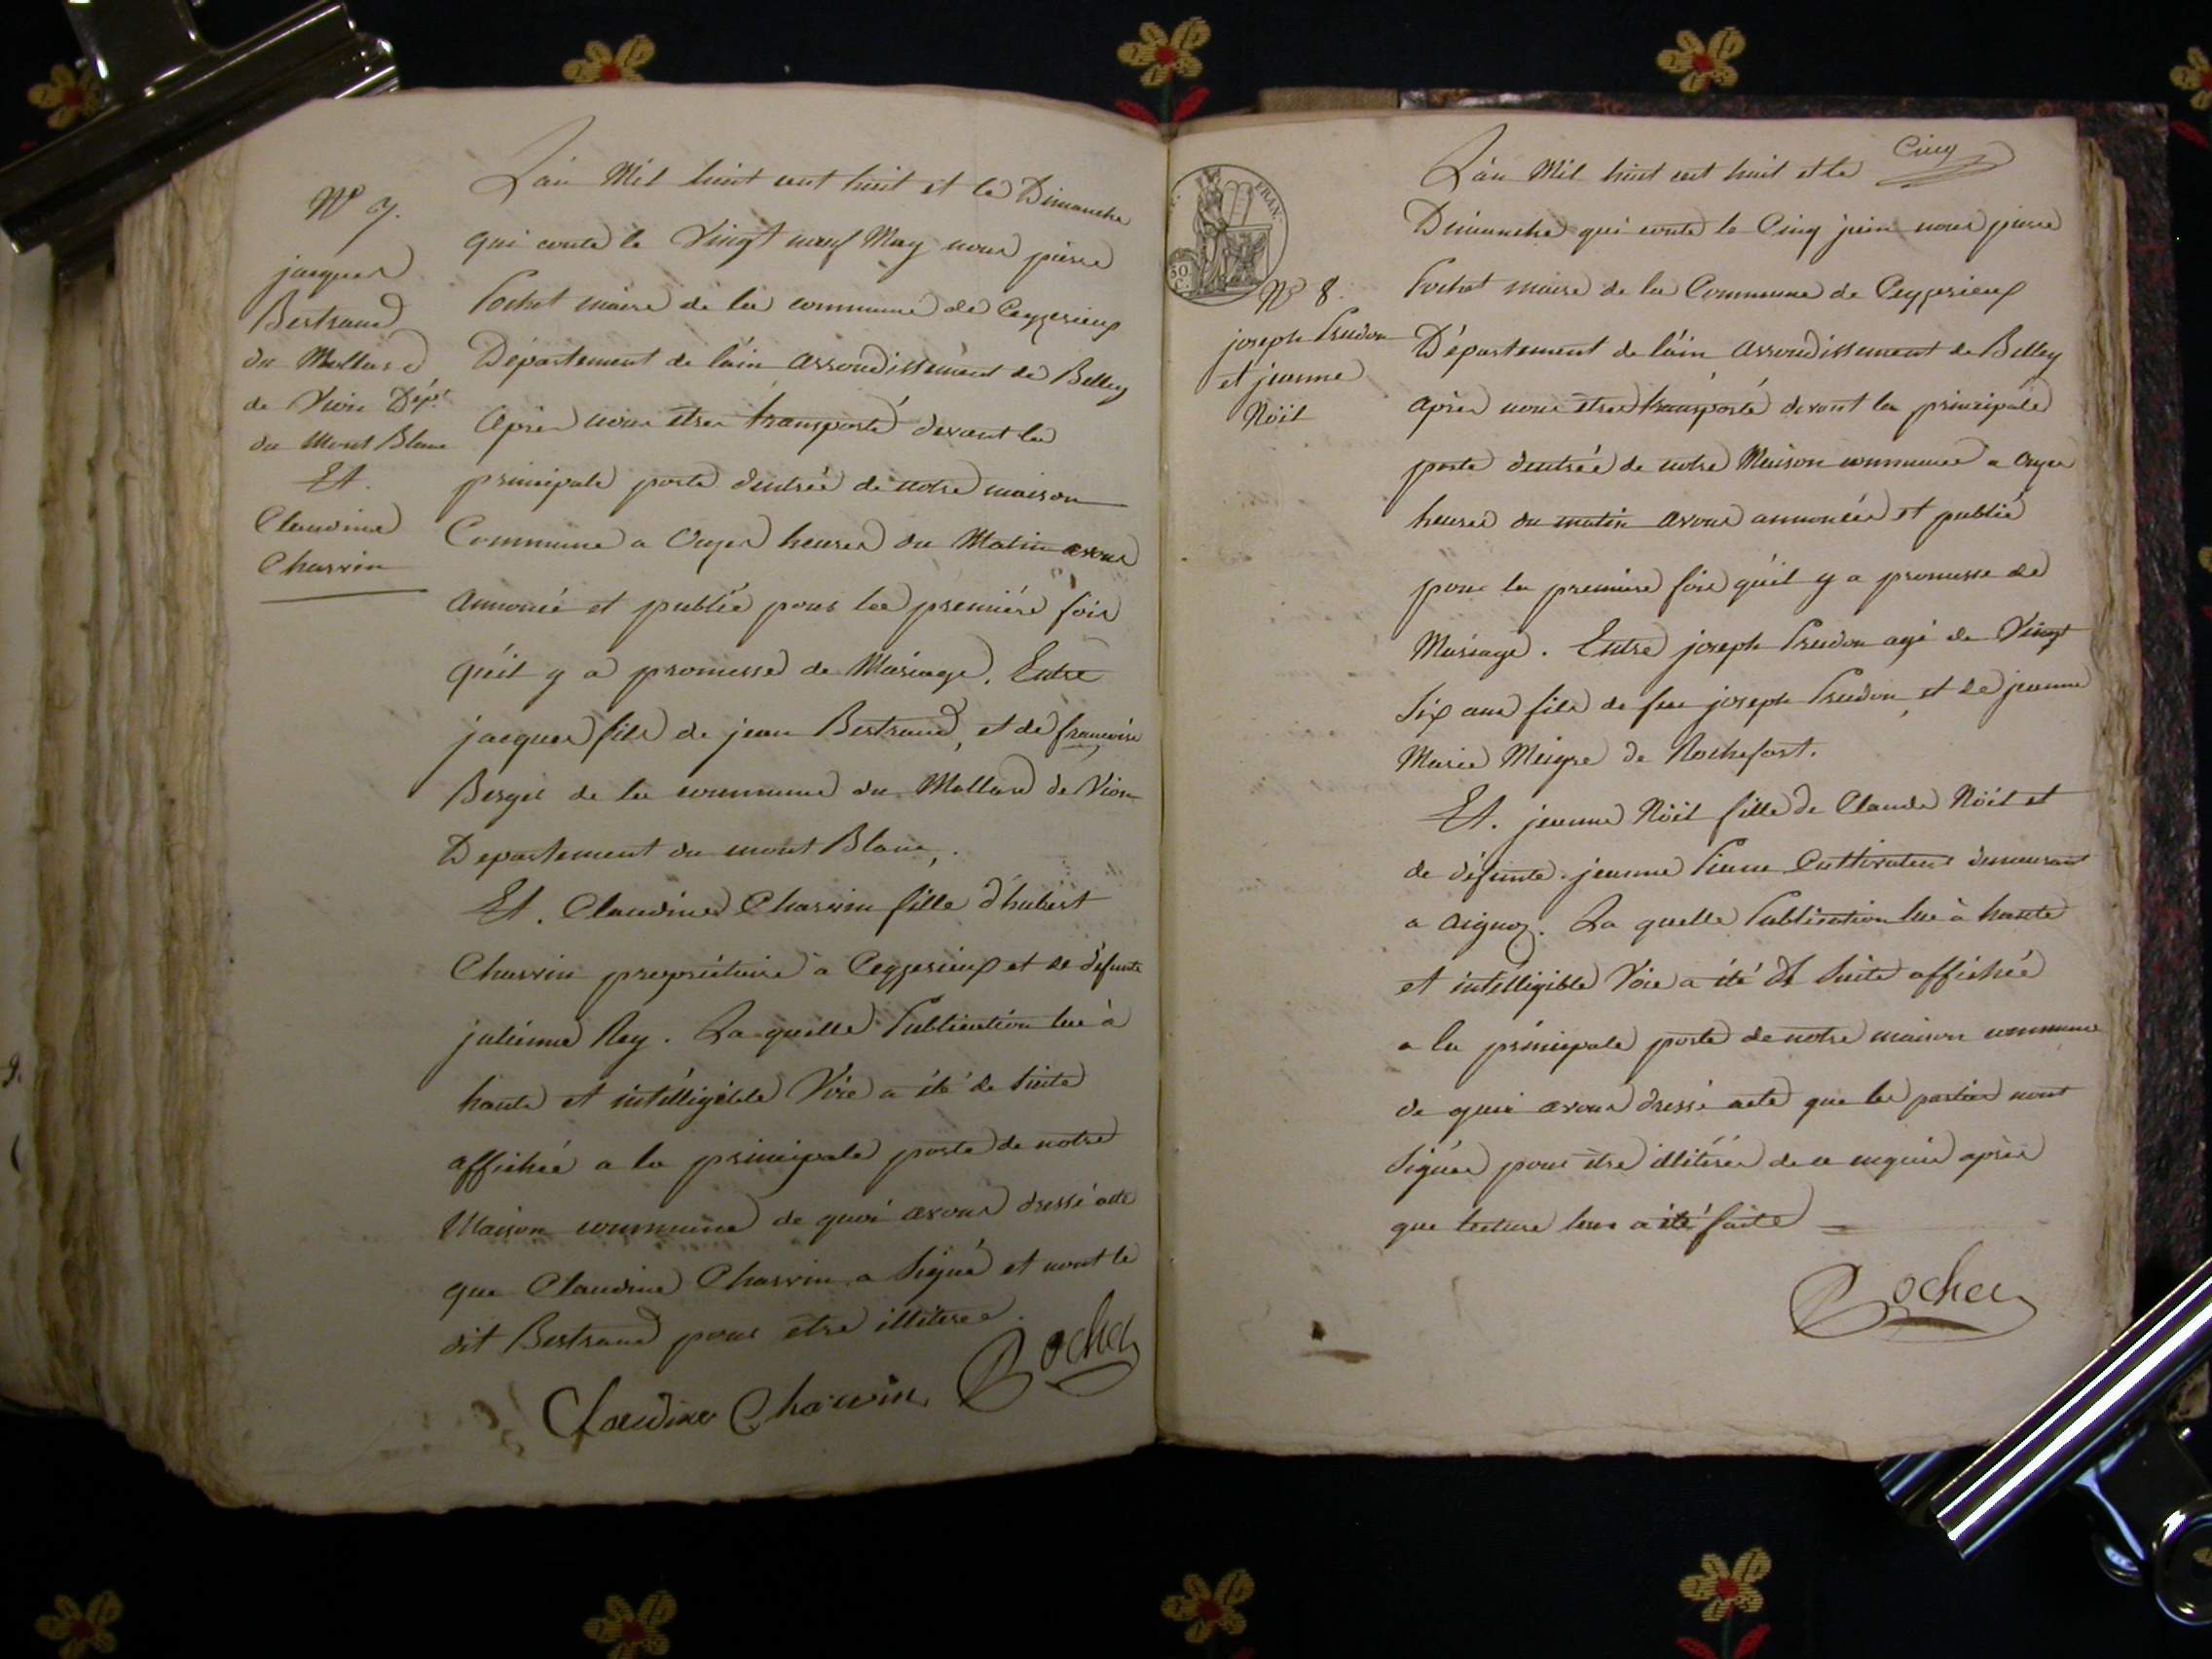 N.º 7.
jacques
Bertrand
du Mollard
de Vion Dép.t
du Mont Blanc
Et.
Claudine
Charvin
L'an Mil huit cent huit et le Dimanche
qui conte le Vingt neuf May nous pierre
Pochet maire de la commune de Ceyzerieux
Département de l'ain arrondissement de Belley
après nous etres transporté devant la
principale porte dentrée de notre maison
Commune a Onzes heures du Matin avons
annoncé et publié pour la premiére fois
qu'il y a promesse de Mariage. Entre
jacques fils de jean Bertrand, et de francoise
Berger de la commune du Mollard de Vion
Departement du mont Blanc,.
Et. Claudine Charvin fille d'hubert
Charvin propriétaire a Ceyzerieux et de défunte
julienne Rey. La quelle Publication lue à
haute et intélligible Voie a été de Suite
affichée a la principale porte de notre
Maison commune de quoi avons dressé acte
que Claudine Charvin a Signé et non le
dit Bertrand pour étre illiteré.
Claudine Charvin Pochet
Cinq
FRAN.
50
C.
N.º 8.
joseph Prudon
et jeanne
Noïl
L'an Mil huit cent huit et le
Dimanche qui conte le Cinq juin nous pierre
Pochet maire de la Commune de Ceyzerieux
Département de l'ain arrondissement de Belley
après nous etres transporté devant la principale
porte dentrée de notre Maison commune a Onze
heures du matin avons annoncées et publié
pour la premiere fois qu'il y a promesse de
Mariage. Entre joseph Prudon agé de Vingt
Six ans fils de feu joseph Prudon, et de jeanne
Marie Meigre de Rochefort.
Et. jeanne Noïl fille de Claude Noïl et
de défunte jeanne Cultivateur demeurant
a aignoz. La quelle Publication lue à haute
et intélligible Voie a été de Suite affichée
a la principale porte de notre maison commune
de quoi avons dressé acte que les parties nont
Signées pour être illitérés de ce requis après
que lecture leur a été faite
Pochet